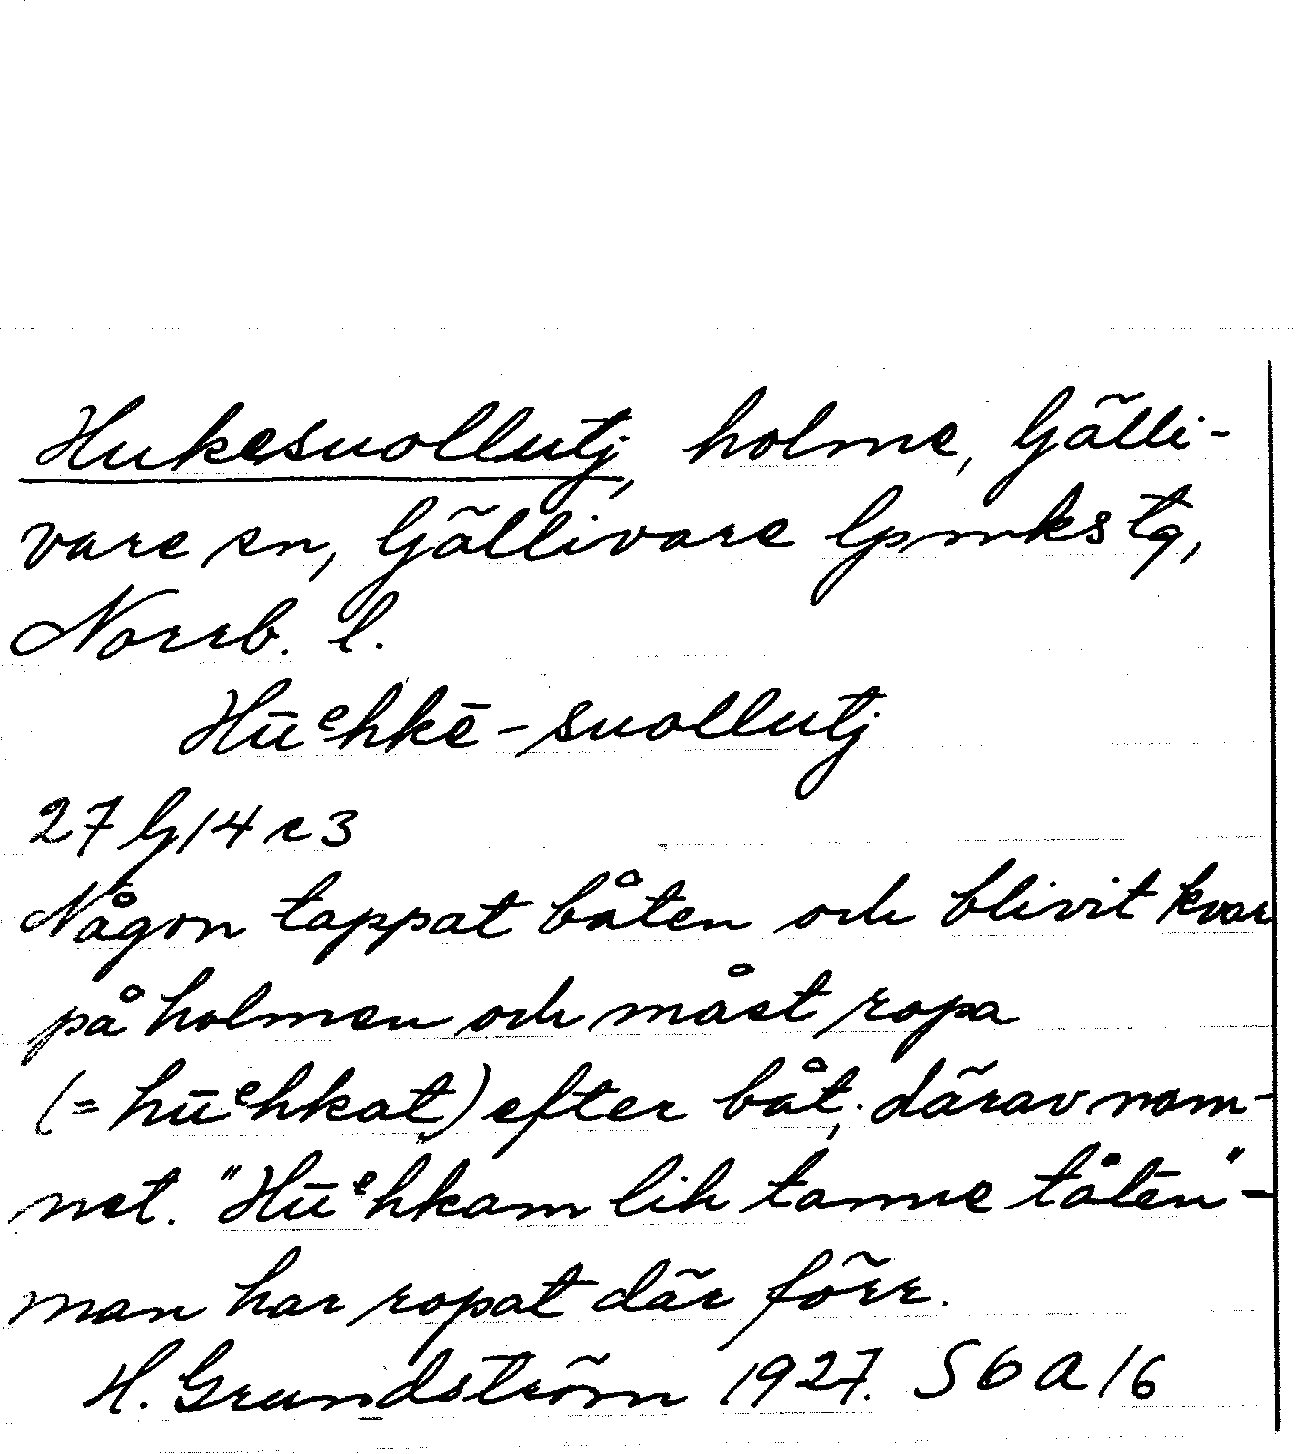 Hukesuollutj, holme, Gälli-
vare sn, Gällivare lpmkstg,
Norrb. l.
Hūᵉhkē-suollutj
27 G/4 c 3
Någon tappat båten och blivit kvar
på holmen och måst ropa
(= hūᵉhkat) efter båt, därav nam-
net. "Hūᵉhkam lih tanne tåtēn" -
man har ropat där förr.
H. Grundström 1927. S6a/6